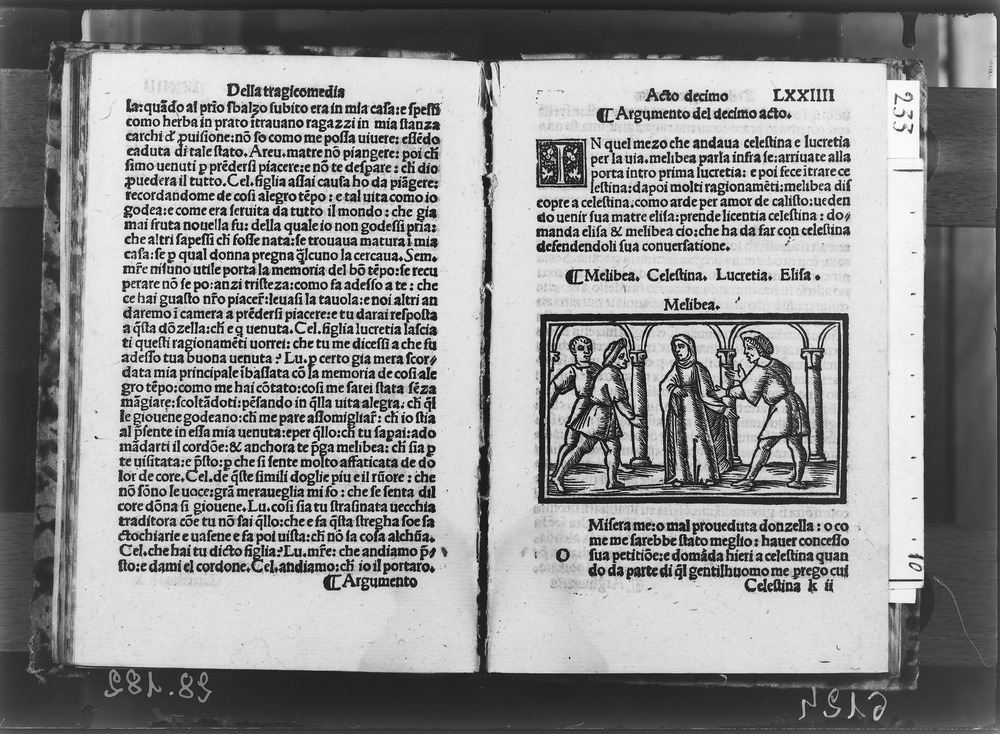 Della tragicomedia
la: quãdo al prĩo sbalzo subito era in mia casa: e spessi
como herba in prato ĩtrauano ragazzi in mia stanza
carchi d' puisione: nõ so como me possa uiuere: essẽdo
caduta di tale stato. Areu. matre nõ piangere: poi ch̃
simo uenuti ꝑ prẽdersi piacere: e nõ te despare: ch̃ dio
ꝓuedera il tutto. Cel. figlia assai causa ho da piãgere:
recordandome de cosi alegro tẽpo: e tal uita como io
godea: e come era seruita da tutto il mondo: che gia
mai fruta nouella fu: della quale io non godessi pria:
che altri sapessi ch̃ fosse nata: se trouaua matura ĩ mia
casa: se ꝑ qual donna pregna q̃lcuno la cercaua. Sem.
mr̃e nisuno utile porta la memoria del bõ tẽpo: se recu
perare nõ se po: anzi tristeza: como fa adesso a te: che
ce hai guasto nr̃o piacer̃: leuasi la tauola: e noi altri an
daremo ĩ camera a prẽdersi piacere: e tu darai resposta
a q̃sta dõzella: ch̃ e q̃ uenuta. Cel. figlia lucretia lascia
ti questi ragionamẽti uorrei: che tu me dicessi a che fu
adesso tua buona uenuta? Lu. ꝑ certo gia mera scor
data mia principale ĩbassata cõ la memoria de cosi ale
gro tẽpo: como me hai cõtato: cosi me sarei stata sẽza
mãgiare: scoltãdoti: pẽsando in q̃lla uita alegra: ch̃ q̃l
le giouene godeano: ch̃ me pare assomigliar̃: ch̃ io stia
al p̃sente in essa mia uenuta: e per q̃llo: ch̃ tu sapai: ado
mãdarti il cordõe: & anchora te p̃ga melibea: ch̃ sia ꝑ
te uisitata: e p̃sto: ꝑ che si sente molto affaticata de do
lor de core. Cel. de q̃ste simili doglie piu e il rũore: che
nõ sõno le uoce: grã meraueglia mi fo: che se senta dil
core dõna si giouene. Lu. cosi sia tu strasinata uecchia
traditora cõe tu nõ sai q̃llo: che e fa q̃sta stregha soe fa
ctochiarie e uasene e fa poi uista: ch̃ nõ sa cosa alchũa.
Cel. che hai tu dicto figlia? Lu. mr̃e: che andiamo p̃
sto: e dami el cordone. Cel. andiamo: ch̃ io il portaro.
¶ Argumento
Acto decimo LXXIIII
¶ Argumento del decimo acto.
IN quel mezo che andaua celestina e lucretia
per la uia. melibea parla infra se: arriuate alla
porta intro prima lucretia: e poi fece ĩtrare ce
lestina: dapoi molti ragionamẽti: melibea dis
copre a celestina. como arde per amor de calisto: ueden
do uenir sua matre elisa: prende licentia celestina: do
manda elisa & melibea cio: che ha da far con celestina
defendendoli sua conuersatione.
¶ Melibea. Celestina. Lucretia. Elisa.
Melibea.
Misera me: o mal proueduta donzella: o co
me me sarebbe stato meglio: hauer concesso
O sua petitiõe: e domãda hieri a celestina quan
do da parte di q̃l gentilhuomo me prego cui
Celestina k ii
233
10
28.182
6124